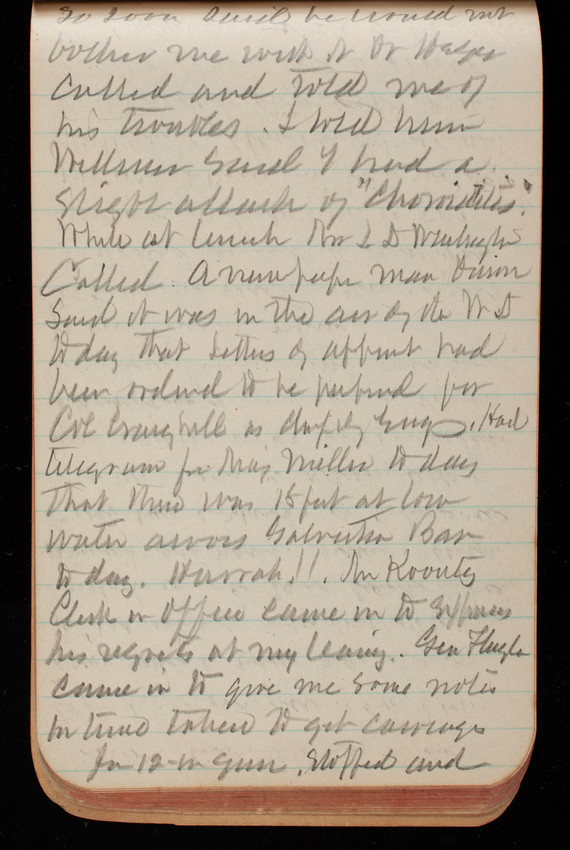 so soon said he would not
bother me with it Dr
Called and told me of
his troubles. I told him
Wellman said I had a
slight attack of "Chronititis."
While at lunch Mr L D
Called. A newspaper man
said it was in the air of the W D
to day that letters of appmt had
been ordered to be prepared for
Col Craighill as Chf of Engs. Had
telegram fr Maj Miller to day
that there was 15 feet at low
water across Galveston Bar
to day. Hurrah!!. Mr Koontz
Clerk in Office came in to express
his regrets at my leaving. Gen Flagler
came in to give me some notes
in time taken to get carriages
for 12-in gun. Stopped and